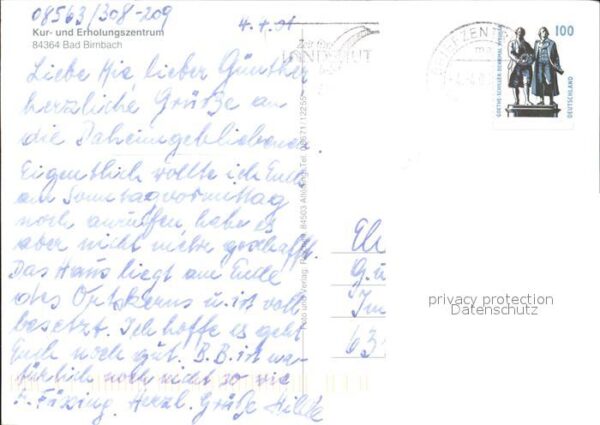 08563/308-209
4.4.01
Kur- und Erholungszentrum
84364 Bad Birnbach
Liebe Mia, lieber Günther
herzliche Grüße an
die Daheimgebliebenen.
Eigentlich wollte ich Euch
am Sonntagvormittag
noch anrufen, habe es
aber nicht mehr geschafft.
Das Haus liegt am Ende
des Ortskerns u. ist voll
besetzt. Ich hoffe es geht
Euch noch gut. B.B. ist na-
türlich noch nicht so wie
B. Füssing. Herzl. Grüße Hilde
BRIEFZENTRUM
100
GOETHE-SCHILLER-DENKMAL WEIMAR
DEUTSCHLAND
Foto und Verlag: 84503 Altötting, Tel. 08671/12255
63
privacy protection
Datenschutz